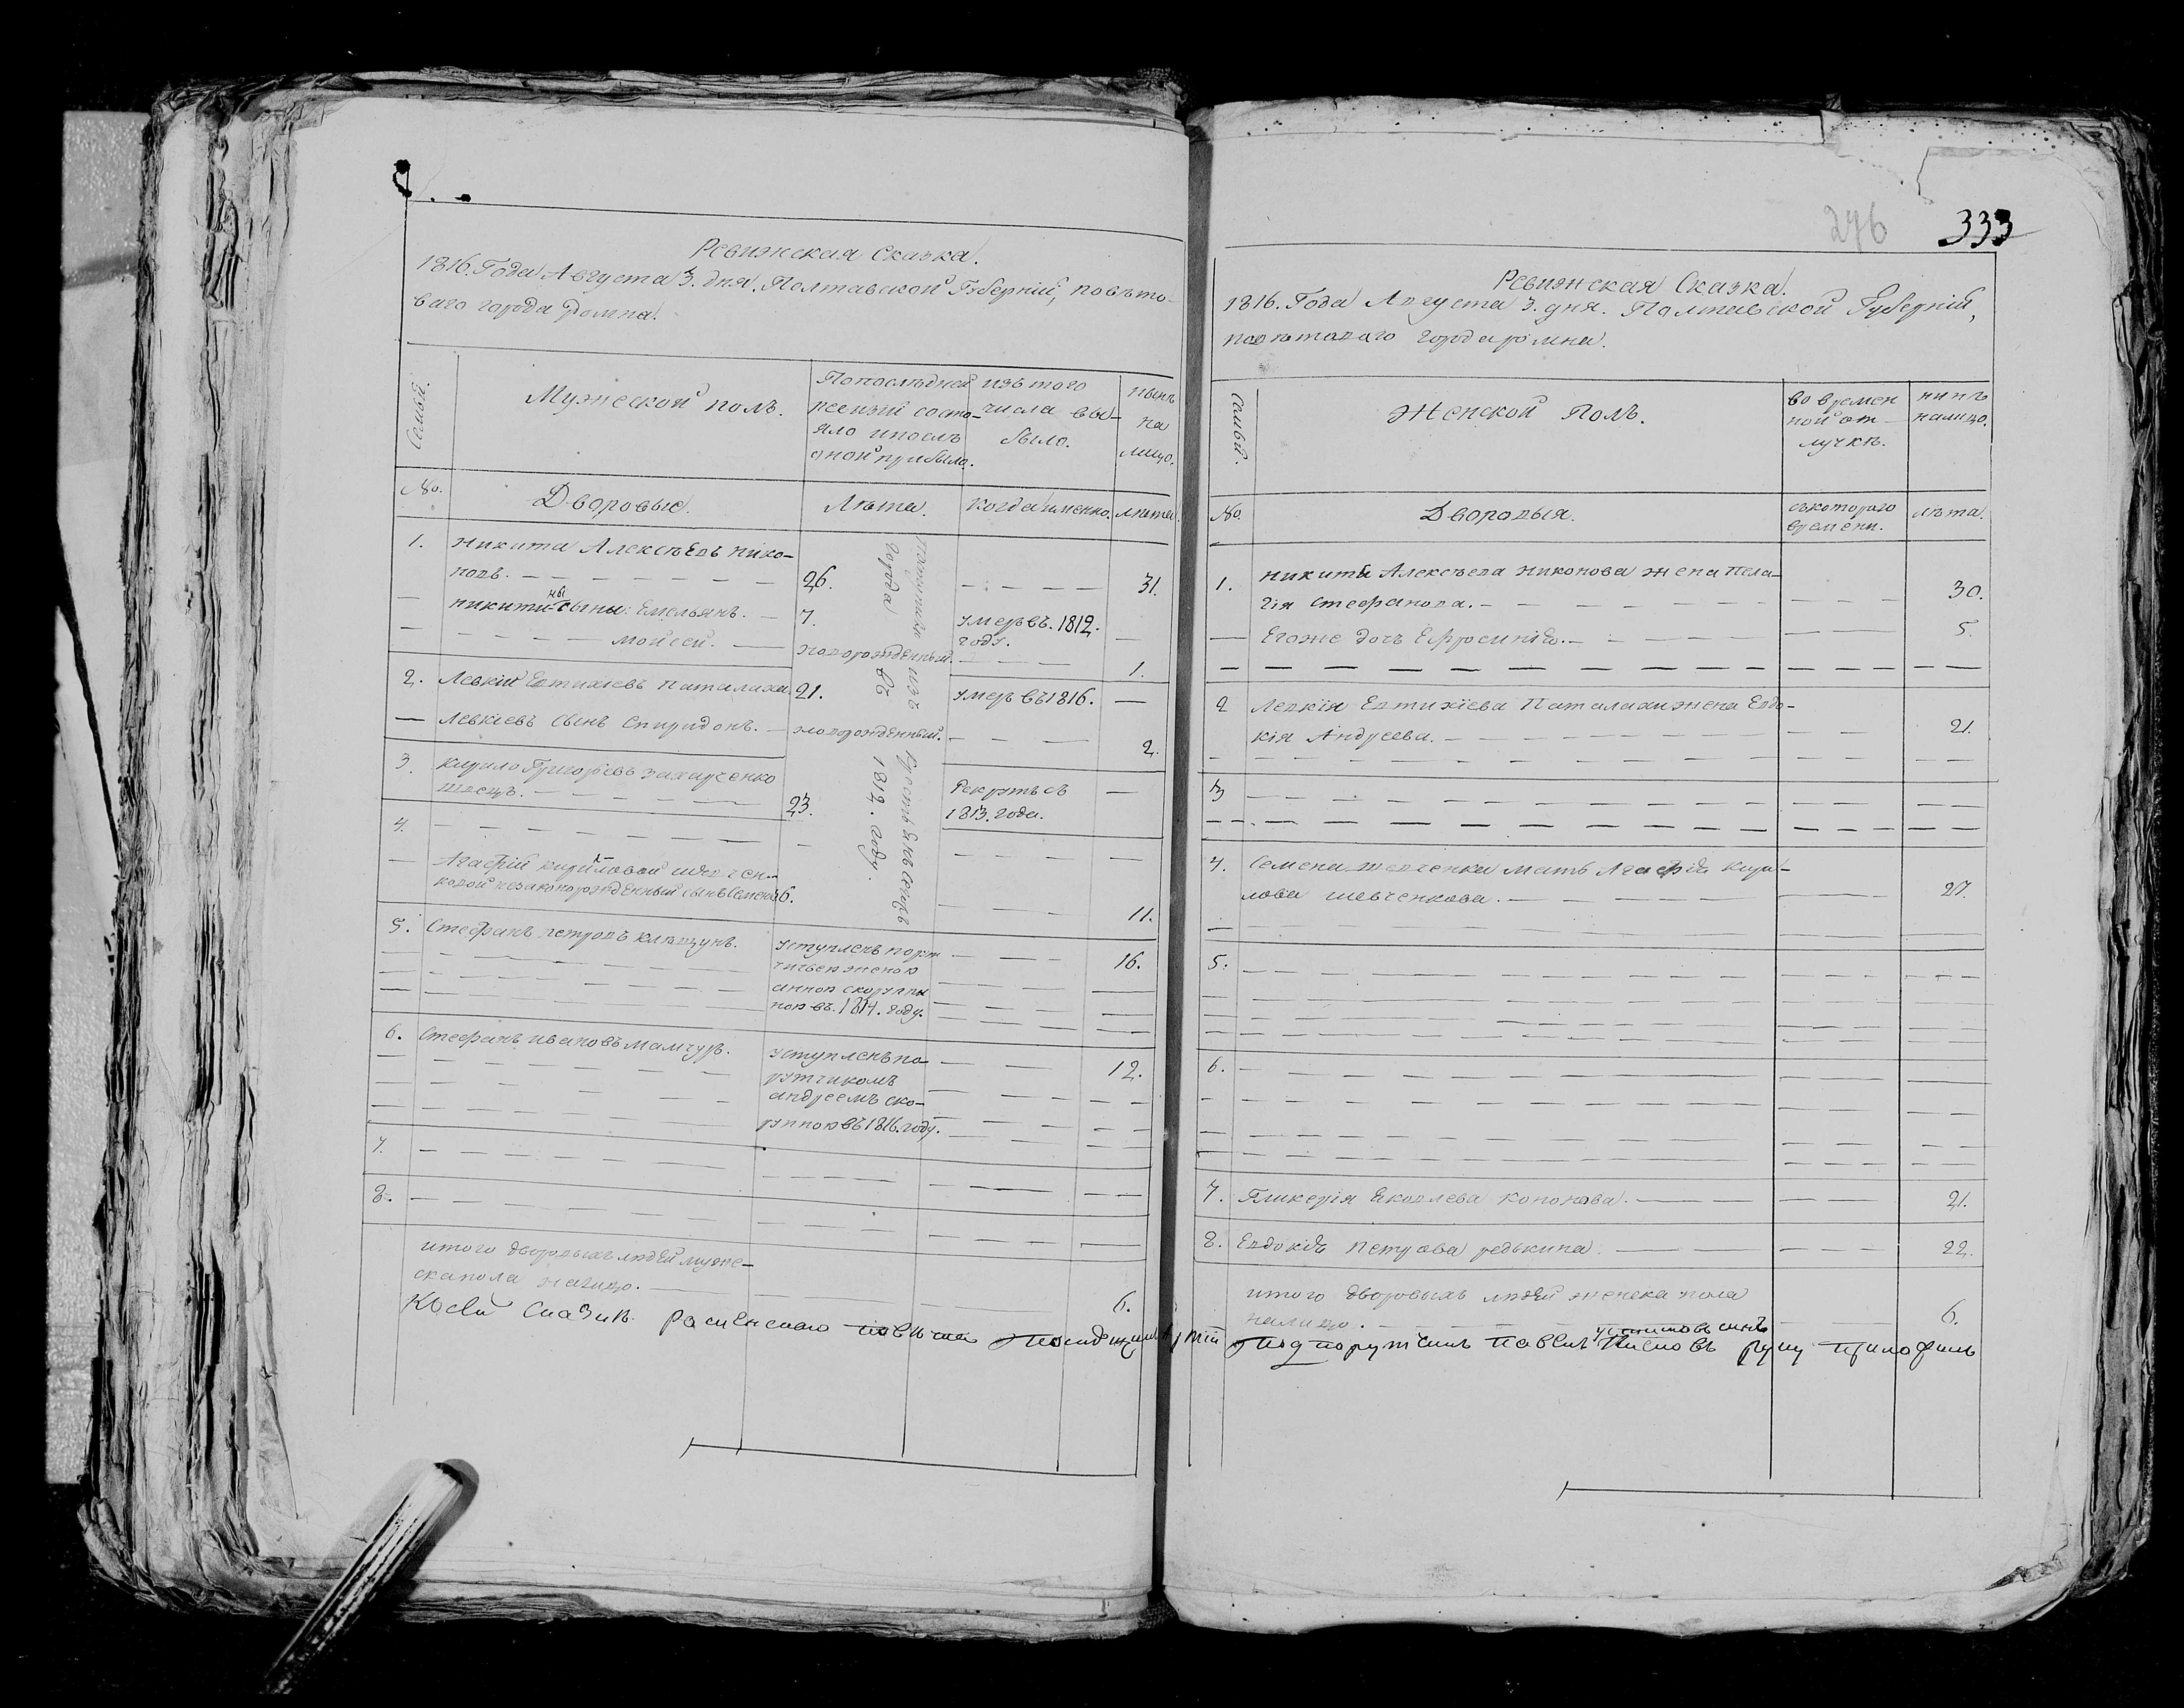 Ревижская Сказка.
1816. Года Августа 3. дня. Полтавской Губерній, повѣто-
ваго города Ромна.
Семьй.
Мужеской полъ.
Попослѣдней
ревизій состо-
яло ипослѣ
оной прибыло.
изъ того
числа вы-
было.
нынѣ
на
лицо.
No.
Дворовые.
Лѣта.
Когда именно.
лѣта.
1.
Никита Алексѣевъ Нико-
новъ.
26.
31.
Никитины сыны: Емельянъ.
7.
умеръ въ 1812.
году.
Мойсей.
новорожденный.
1.
2.
Левкій Евтихіевъ Паталаха
21.
умеръ въ 1816.
Левкіевъ сынъ Спиридонъ.
новорожденный.
2.
3.
Кирило Григорьевъ Захарченко
Швецъ.
23.
Рекрутъ съ
1813. года.
4.
Агафій Кириловой Шевчен-
ковой незаконорожденный сынъ Семенъ
6.
11.
города
въ
1812. году.
изъ
5.
Стефанъ Петровъ Клещунъ.
уступленъ пору-
чичьею женою
Анною Скорупи-
ною въ 1814. году.
16.
6.
Стефанъ Ивановъ Мамчуръ.
уступленъ по-
рутчикомъ
Андреемъ Ско-
рупою въ 1816. году.
12.
7.
8.
итого дворовыхъ людей муже-
ска пола налицо.
6.
К сей сказки роменского повѣта помѣщикъ
276
333
Ревижская Сказка.
1816. Года Августа 3. дня. Полтавской Губерній,
повѣтоваго города Ромна.
Семьй.
Женской Полъ.
во времен
ной от-
лучкѣ.
нинѣ
налицо.
No.
Дворовыя.
съ котораго
времени.
лѣта.
1.
Никиты Алексѣева Никонова жена Пела-
гія Стефанова.
30.
Егоже дочь Ефросинія.
5.
2
Левкія Евтихіева Паталахи жена Евдо-
кія Андреева.
21.
3
4.
Семена Шевченка мать Агафія Кири-
лова Шевченкова.
27.
5.
6.
7.
Гликерія Яковлева Кононова.
21.
8.
Евдокія Петрова Редькина.
22.
итого дворовыхъ людей женска пола
налицо.
6.
подпорутчикъ Павелъ руку приложилъ